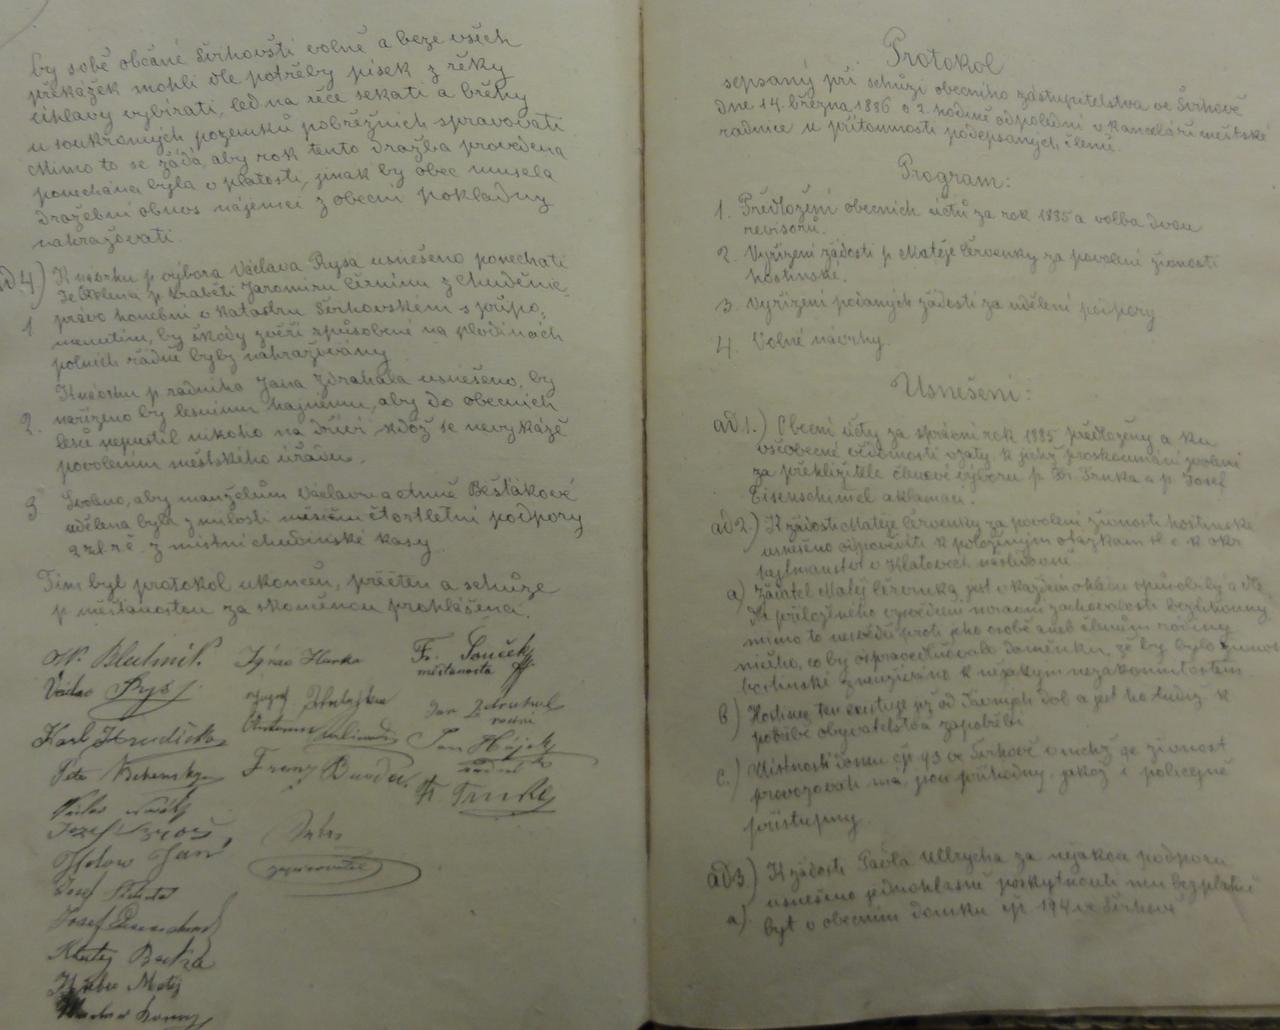 by sobě občané Švihovští volně a beze všech
překážek mohli dle potřeby písek z řeky
vybírati, led na řece sekati a břehy
u soukromých pozemků pobřežních spravovati
Mimo to se žádá, aby rok tento dražba provedena
ponechána byla v platosti, jinak by obec musela
dražební obnos nájemci z obecní pokladny
nahražovati.
ad 4) K návrhu p výbora Václava Rysa usnešeno ponechati
p hraběti Jaromíru Černínu z Chuděnic
1 právo honební v katastru Švihovském s připo-
menutím, by škody zvěří způsobené na plodinách
polních řádně byly nahražovány
K návrhu p radního Jana Zdrahala usnešeno, by
2. nařízeno by lesnímu hajnému, aby do obecních
lesů nepustil nikoho na dříví kdož se nevykáže
povolením městského úřadu.
3 aby manželům Václavu a Anně Bešťákové
udělena byla z milosti čtvrtletní podpory
2 zl r.č. z místní chudinské kasy.
Tím byl protokol ukončen, přečten a schůze
p měšťanostou za skončenou prohlášena.
Fr. Souček
měšťanosta
Václav Rys
Jan Zdrahal
radní
Karl Hrudička
Jan Hájek
Franz Burda
Fr. Trnka
Václav
Josef
Jan
Josef
Josef
Matěj
Matěj
zapisovatel
Protokol
sepsaný při schůzi obecního zástupitelstva ve Švihově
dne 14. března 1886 o 2. hodině odpolední v kanceláři městské
radnice u přítomnosti podepsaných členů.
Program:
1. Předložení obecních účtů za rok 1885 a volba dvou
revisorů.
2. Vyřízení žádosti p Matěje Červenky za povolení živnosti
hostinské.
3. Vyřízení podaných žádostí za udělení podpory
4. Volné návrhy.
Usnešení:
ad 1.) Obecní účty za správní rok 1885 předloženy a ku
všeobecné vědomosti vzaty k jichž proskoumání zvoleni
za přehlížitele členové výboru p. Fr. Trnka a p. Josef
Eisenschiml aklamací.
ad 2.) K žádosti Matěje Červenky za povolení živnosti hostinské
usnešeno odpověděti k položeným otázkám sl c k okr
hejtmanství v Klatovech následovně:
a) Žadatel Matěj Červenka jest v každém ohledu způsobilý a dle
přiloženého vysvědčení mravní zachovalosti bezúhonný
mimo to nesvědčí proti jeho osobě aneb členům rodiny
ničeho, co by ospravedlňovalo doměnku, že by bylo živnosti
hostinské zneužíváno k nějakým nezákonnitostem
b) Hostinec ten existuje již od dávných dob a jest ho tudíž k
potřebě obyvatelstva zapotřebí
c) Místnosti domu čp 93 ve Švihově v nichž se živnost
provozovati má, jsou příhodny, jakož i policejně
přístupny.
ad 3) K žádosti Pavla Ullrycha za nějakou podporu
usnešeno jednohlasně poskytnouti mu bezplatně
a) byt v obecním domku čp. 194 ve Švihově